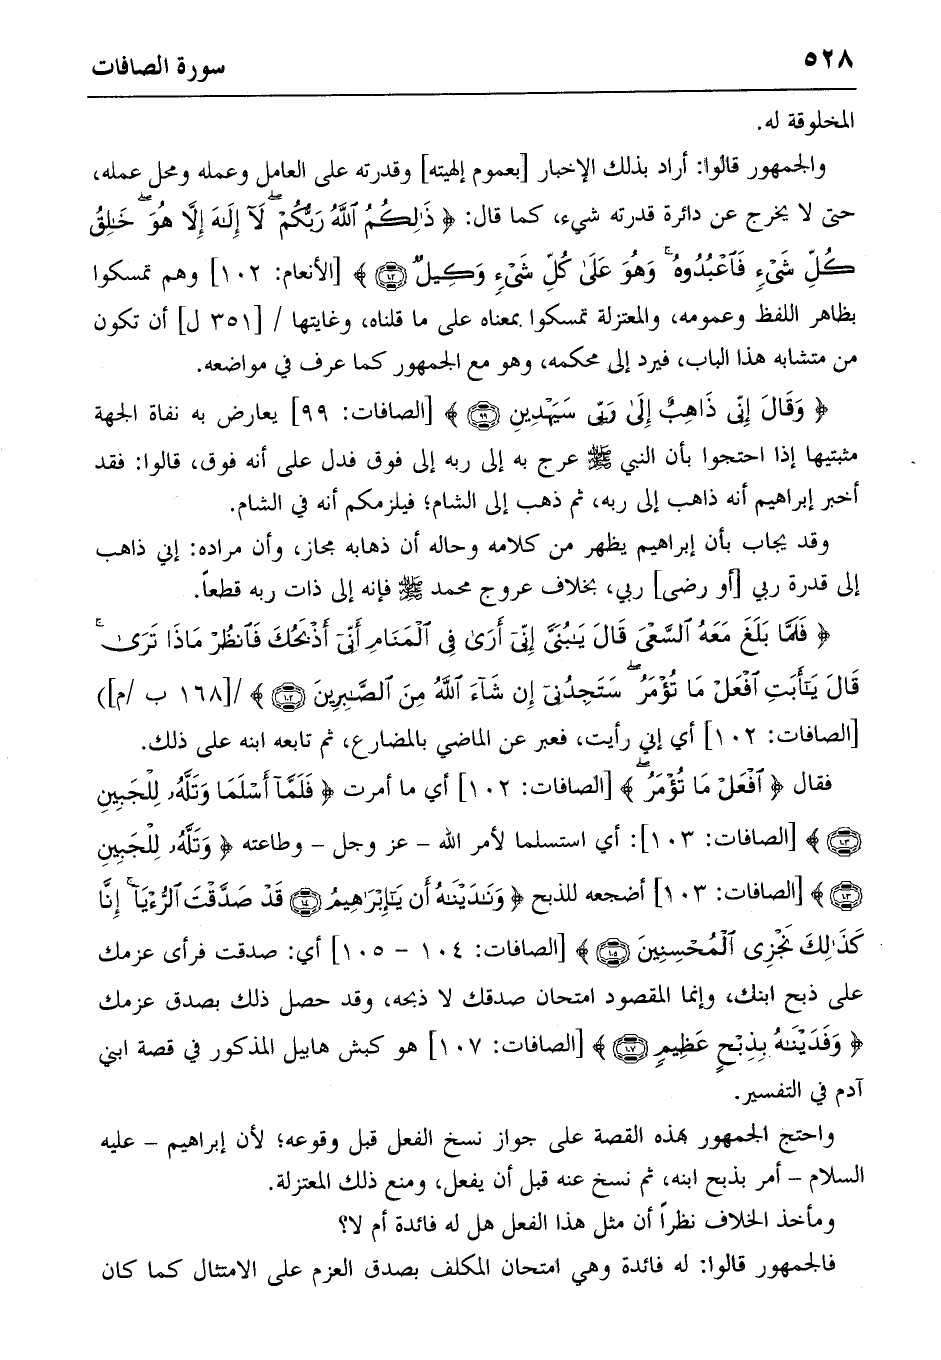 ٥٢٨
سورة الصافات
المخلوقة له.
والجمهور قالوا: أراد بذلك الإخبار [بعموم إلهيته] وقدرته على العامل وعمله ومحل عمله،
حتى لا يخرج عن دائرة قدرته شيء، كما قال: ﴿ ذَٰلِكُمُ ٱللَّهُ رَبُّكُمْ ۖ لَآ إِلَٰهَ إِلَّا هُوَ ۖ خَٰلِقُ
كُلِّ شَىْءٍ فَٱعْبُدُوهُ ۚ وَهُوَ عَلَىٰ كُلِّ شَىْءٍ وَكِيلٌ ﴿١٠٢﴾ ﴾ [الأنعام: ١٠٢] وهم تمسكوا
بظاهر اللفظ وعمومه، والمعتزلة تمسكوا بمعناه على ما قلناه، وغايتها / [٣٥١ ل] أن تكون
من متشابه هذا الباب، فيرد إلى محكمه، وهو مع الجمهور كما عرف في مواضعه.
﴿ وَقَالَ إِنِّى ذَاهِبٌ إِلَىٰ رَبِّى سَيَهْدِينِ ﴿٩٩﴾ ﴾ [الصافات: ٩٩] يعارض به نفاة الجهة
مثبتيها إذا احتجوا بأن النبي ﷺ عرج به إلى ربه إلى فوق فدل على أنه فوق، قالوا: فقد
أخبر إبراهيم أنه ذاهب إلى ربه، ثم ذهب إلى الشام؛ فيلزمكم أنه في الشام.
وقد يجاب بأن إبراهيم يظهر من كلامه وحاله أن ذهابه مجاز، وأن مراده: إني ذاهب
إلى قدرة ربي [أو رضى] ربي، بخلاف عروج محمد ﷺ فإنه إلى ذات ربه قطعاً.
﴿ فَلَمَّا بَلَغَ مَعَهُ ٱلسَّعْىَ قَالَ يَٰبُنَىَّ إِنِّىٓ أَرَىٰ فِى ٱلْمَنَامِ أَنِّىٓ أَذْبَحُكَ فَٱنظُرْ مَاذَا تَرَىٰ ۚ
قَالَ يَٰٓأَبَتِ ٱفْعَلْ مَا تُؤْمَرُ ۖ سَتَجِدُنِىٓ إِن شَآءَ ٱللَّهُ مِنَ ٱلصَّٰبِرِينَ ﴿١٠٢﴾ ﴾ /[١٦٨ ب /م])
[الصافات: ١٠٢] أي إني رأيت، فعبر عن الماضي بالمضارع، ثم تابعه ابنه على ذلك.
فقال ﴿ ٱفْعَلْ مَا تُؤْمَرُ ۖ ﴾ [الصافات: ١٠٢] أي ما أمرت ﴿ فَلَمَّآ أَسْلَمَا وَتَلَّهُۥ لِلْجَبِينِ
﴿١٠٣﴾ ﴾ [الصافات: ١٠٣]: أي استسلما لأمر الله - عز وجل - وطاعته ﴿ وَتَلَّهُۥ لِلْجَبِينِ
﴿١٠٣﴾ ﴾ [الصافات: ١٠٣] أضجعه للذبح ﴿ وَنَٰدَيْنَٰهُ أَن يَٰٓإِبْرَٰهِيمُ ﴿١٠٤﴾ قَدْ صَدَّقْتَ ٱلرُّءْيَآ ۚ إِنَّا
كَذَٰلِكَ نَجْزِى ٱلْمُحْسِنِينَ ﴿١٠٥﴾ ﴾ [الصافات: ١٠٤ - ١٠٥] أي: صدقت فرأى عزمك
على ذبح ابنك، وإنما المقصود امتحان صدقك لا ذبحه، وقد حصل ذلك بصدق عزمك
﴿ وَفَدَيْنَٰهُ بِذِبْحٍ عَظِيمٍ ﴿١٠٧﴾ ﴾ [الصافات: ١٠٧] هو كبش هابيل المذكور في قصة ابني
آدم في التفسير.
واحتج الجمهور بهذه القصة على جواز نسخ الفعل قبل وقوعه؛ لأن إبراهيم - عليه
السلام - أمر بذبح ابنه، ثم نسخ عنه قبل أن يفعل، ومنع ذلك المعتزلة.
ومأخذ الخلاف نظراً أن مثل هذا الفعل هل له فائدة أم لا؟
فالجمهور قالوا: له فائدة وهي امتحان المكلف بصدق العزم على الامتثال كما كان